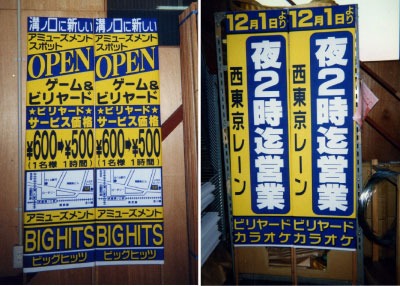 溝ノ口に新しい
アミューズメント
スポット
OPEN
ゲーム&
ビリヤード
★ビリヤード★
サービス価格
¥600➡¥500
(1名様 1時間)
アミューズメント
BIGHITS
ビッグヒッツ
溝ノ口に新しい
アミューズメント
スポット
OPEN
ゲーム&
ビリヤード
★ビリヤード★
サービス価格
¥600➡¥500
(1名様 1時間)
アミューズメント
BIGHITS
ビッグヒッツ
12月1日より
夜2時迄営業
西東京レーン
ビリヤード
カラオケ
12月1日より
夜2時迄営業
西東京レーン
ビリヤード
カラオケ